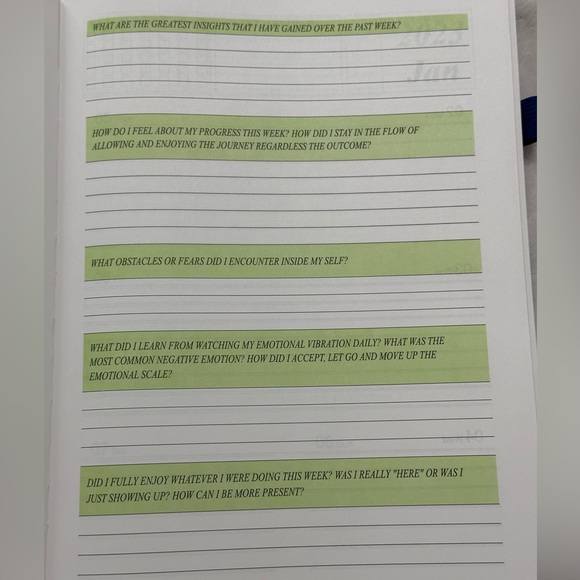 WHAT ARE THE GREATEST INSIGHTS THAT I HAVE GAINED OVER THE PAST WEEK?
2025
Jan
HOW DO I FEEL ABOUT MY PROGRESS THIS WEEK? HOW DID I STAY IN THE FLOW OF
ALLOWING AND ENJOYING THE JOURNEY REGARDLESS THE OUTCOME?
WHAT OBSTACLES OR FEARS DID I ENCOUNTER INSIDE MY SELF?
WHAT DID I LEARN FROM WATCHING MY EMOTIONAL VIBRATION DAILY? WHAT WAS THE
MOST COMMON NEGATIVE EMOTION? HOW DID I ACCEPT, LET GO AND MOVE UP THE
EMOTIONAL SCALE?
DID I FULLY ENJOY WHATEVER I WERE DOING THIS WEEK? WAS I REALLY "HERE" OR WAS I
JUST SHOWING UP? HOW CAN I BE MORE PRESENT?